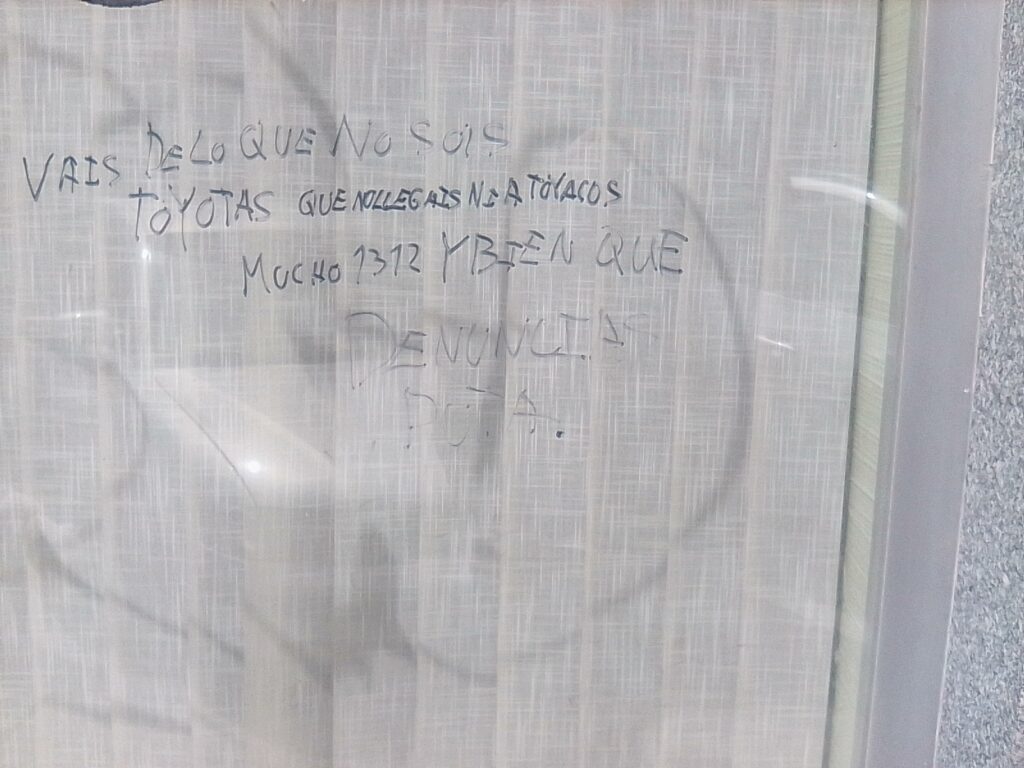 VAIS DE LO QUE NO SOIS
TOYOTAS QUE NO LLEGAIS NI A TOYACOS
MUCHO 1312 Y BIEN QUE
DENUNCIAS
PUTA.